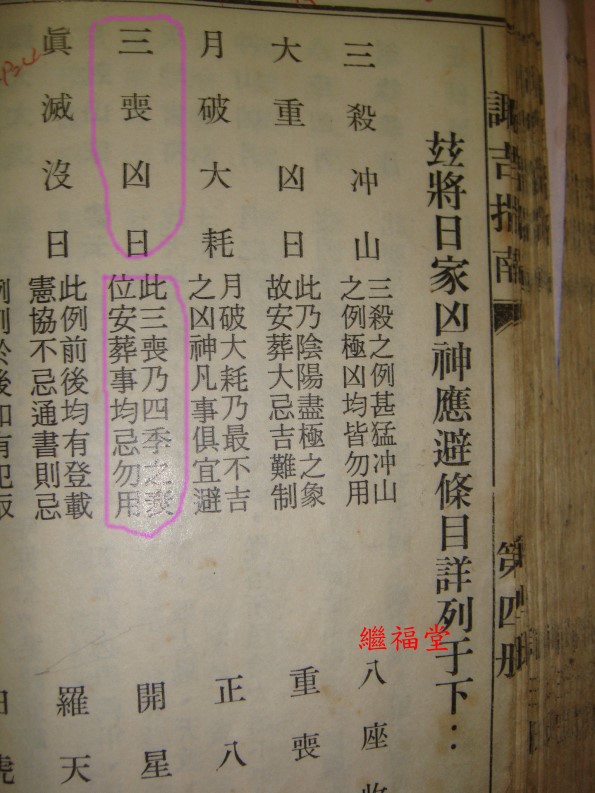 諏吉指南 第四册
玆將日家凶神應避條目詳列于下：
三殺冲山
三殺之例甚猛冲山
之例極凶均皆勿用
大重凶日
此乃陰陽盡極之象
故安葬大忌吉難制
月破大耗
月破大耗乃最不吉
之凶神凡事俱宜避
三喪凶日
此三喪乃四季之喪
位安葬事均忌勿用
眞滅沒日
此例前後均有登載
憲協不忌通書則忌
八座
重喪
正八
開星
羅天
繼福堂